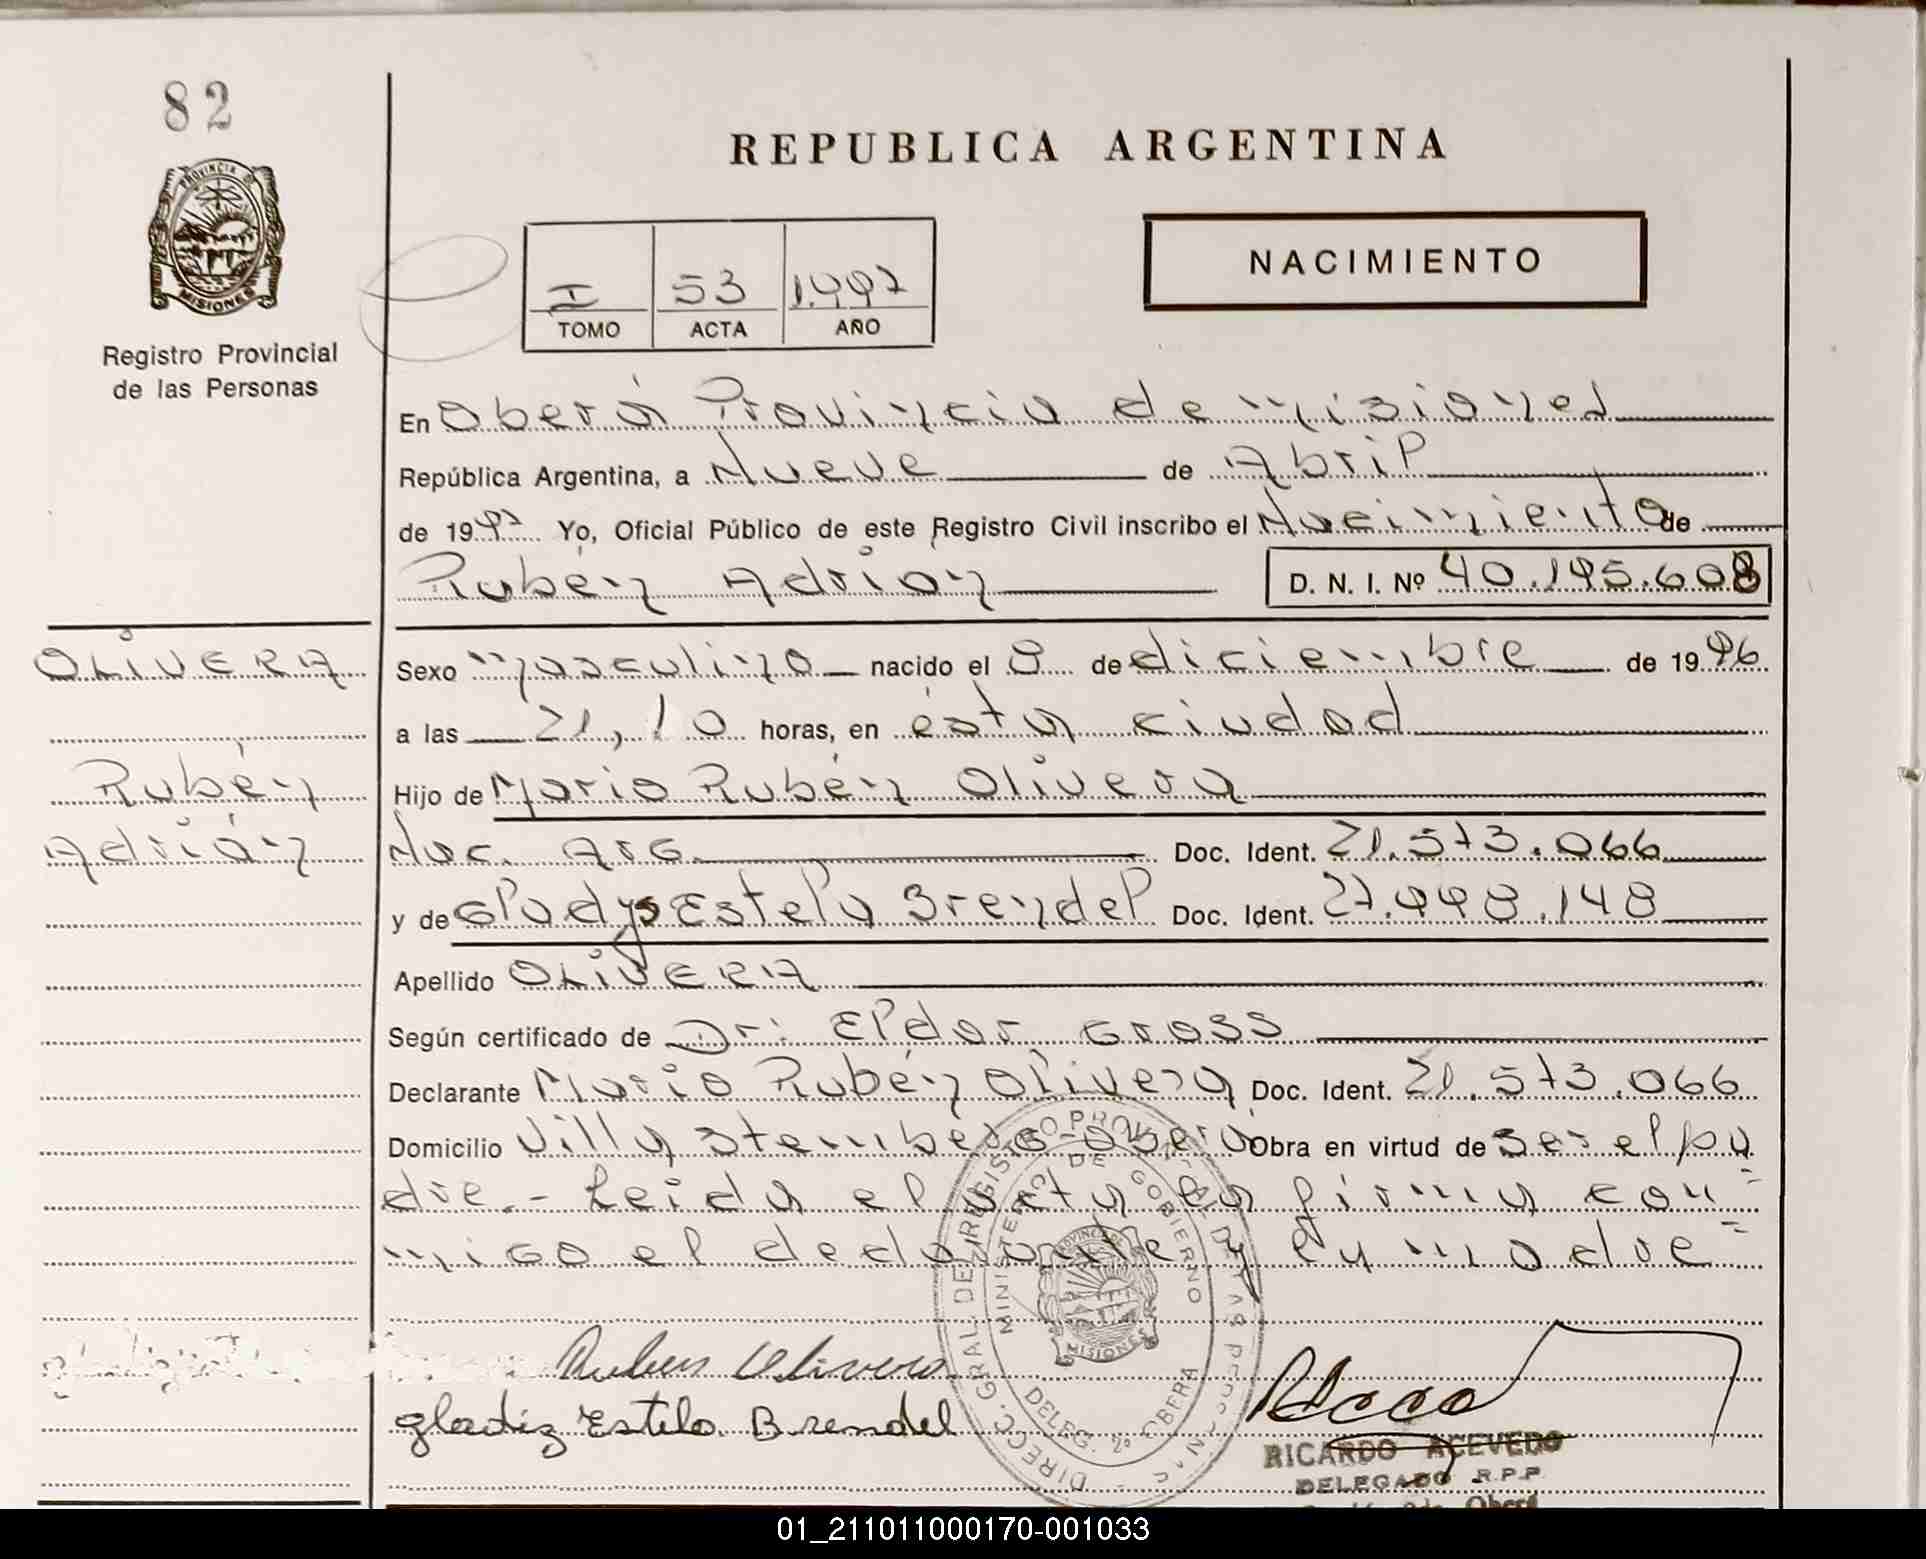 82
REPUBLICA ARGENTINA
PROVINCIA DE
MISIONES
Registro Provincial
de las Personas
I 53 1.997
TOMO ACTA AÑO
NACIMIENTO
En Oberá Provincia de Misiones
República Argentina, a Nueve de Abril
de 1997 Yo, Oficial Público de este Registro Civil inscribo el Nacimiento de
Rubén Adrián D. N. I. Nº 40.195.608
OLIVERA
Rubén
Adrián
Sexo Masculino nacido el 8 de diciembre de 1996
a las 21,10 horas, en ésta ciudad
Hijo de Mario Rubén Olivera
Nac. Arg. Doc. Ident. 21.573.066
y de Gladys Estela Brendel Doc. Ident. 27.998.148
Apellido OLIVERA
Según certificado de Dr: Eldor Gross
Declarante Mario Rubén Olivera Doc. Ident. 21.573.066
Domicilio Villa Stemberg-Oberá Obra en virtud de ser el pa
dre.- Leida el acta la firma con=
migo el declarante y la madre=
Ruben Olivera
gladiz Estela Brendel
DIRECC. GRAL. DE REGISTRO PROVINCIAL DE LAS PERSONAS
MINISTERIO DE GOBIERNO
PROVINCIA DE MISIONES
DELEG. 2º OBERA
RICARDO ACEVEDO
DELEGADO R.P.P.
Oberá
01_211011000170-001033